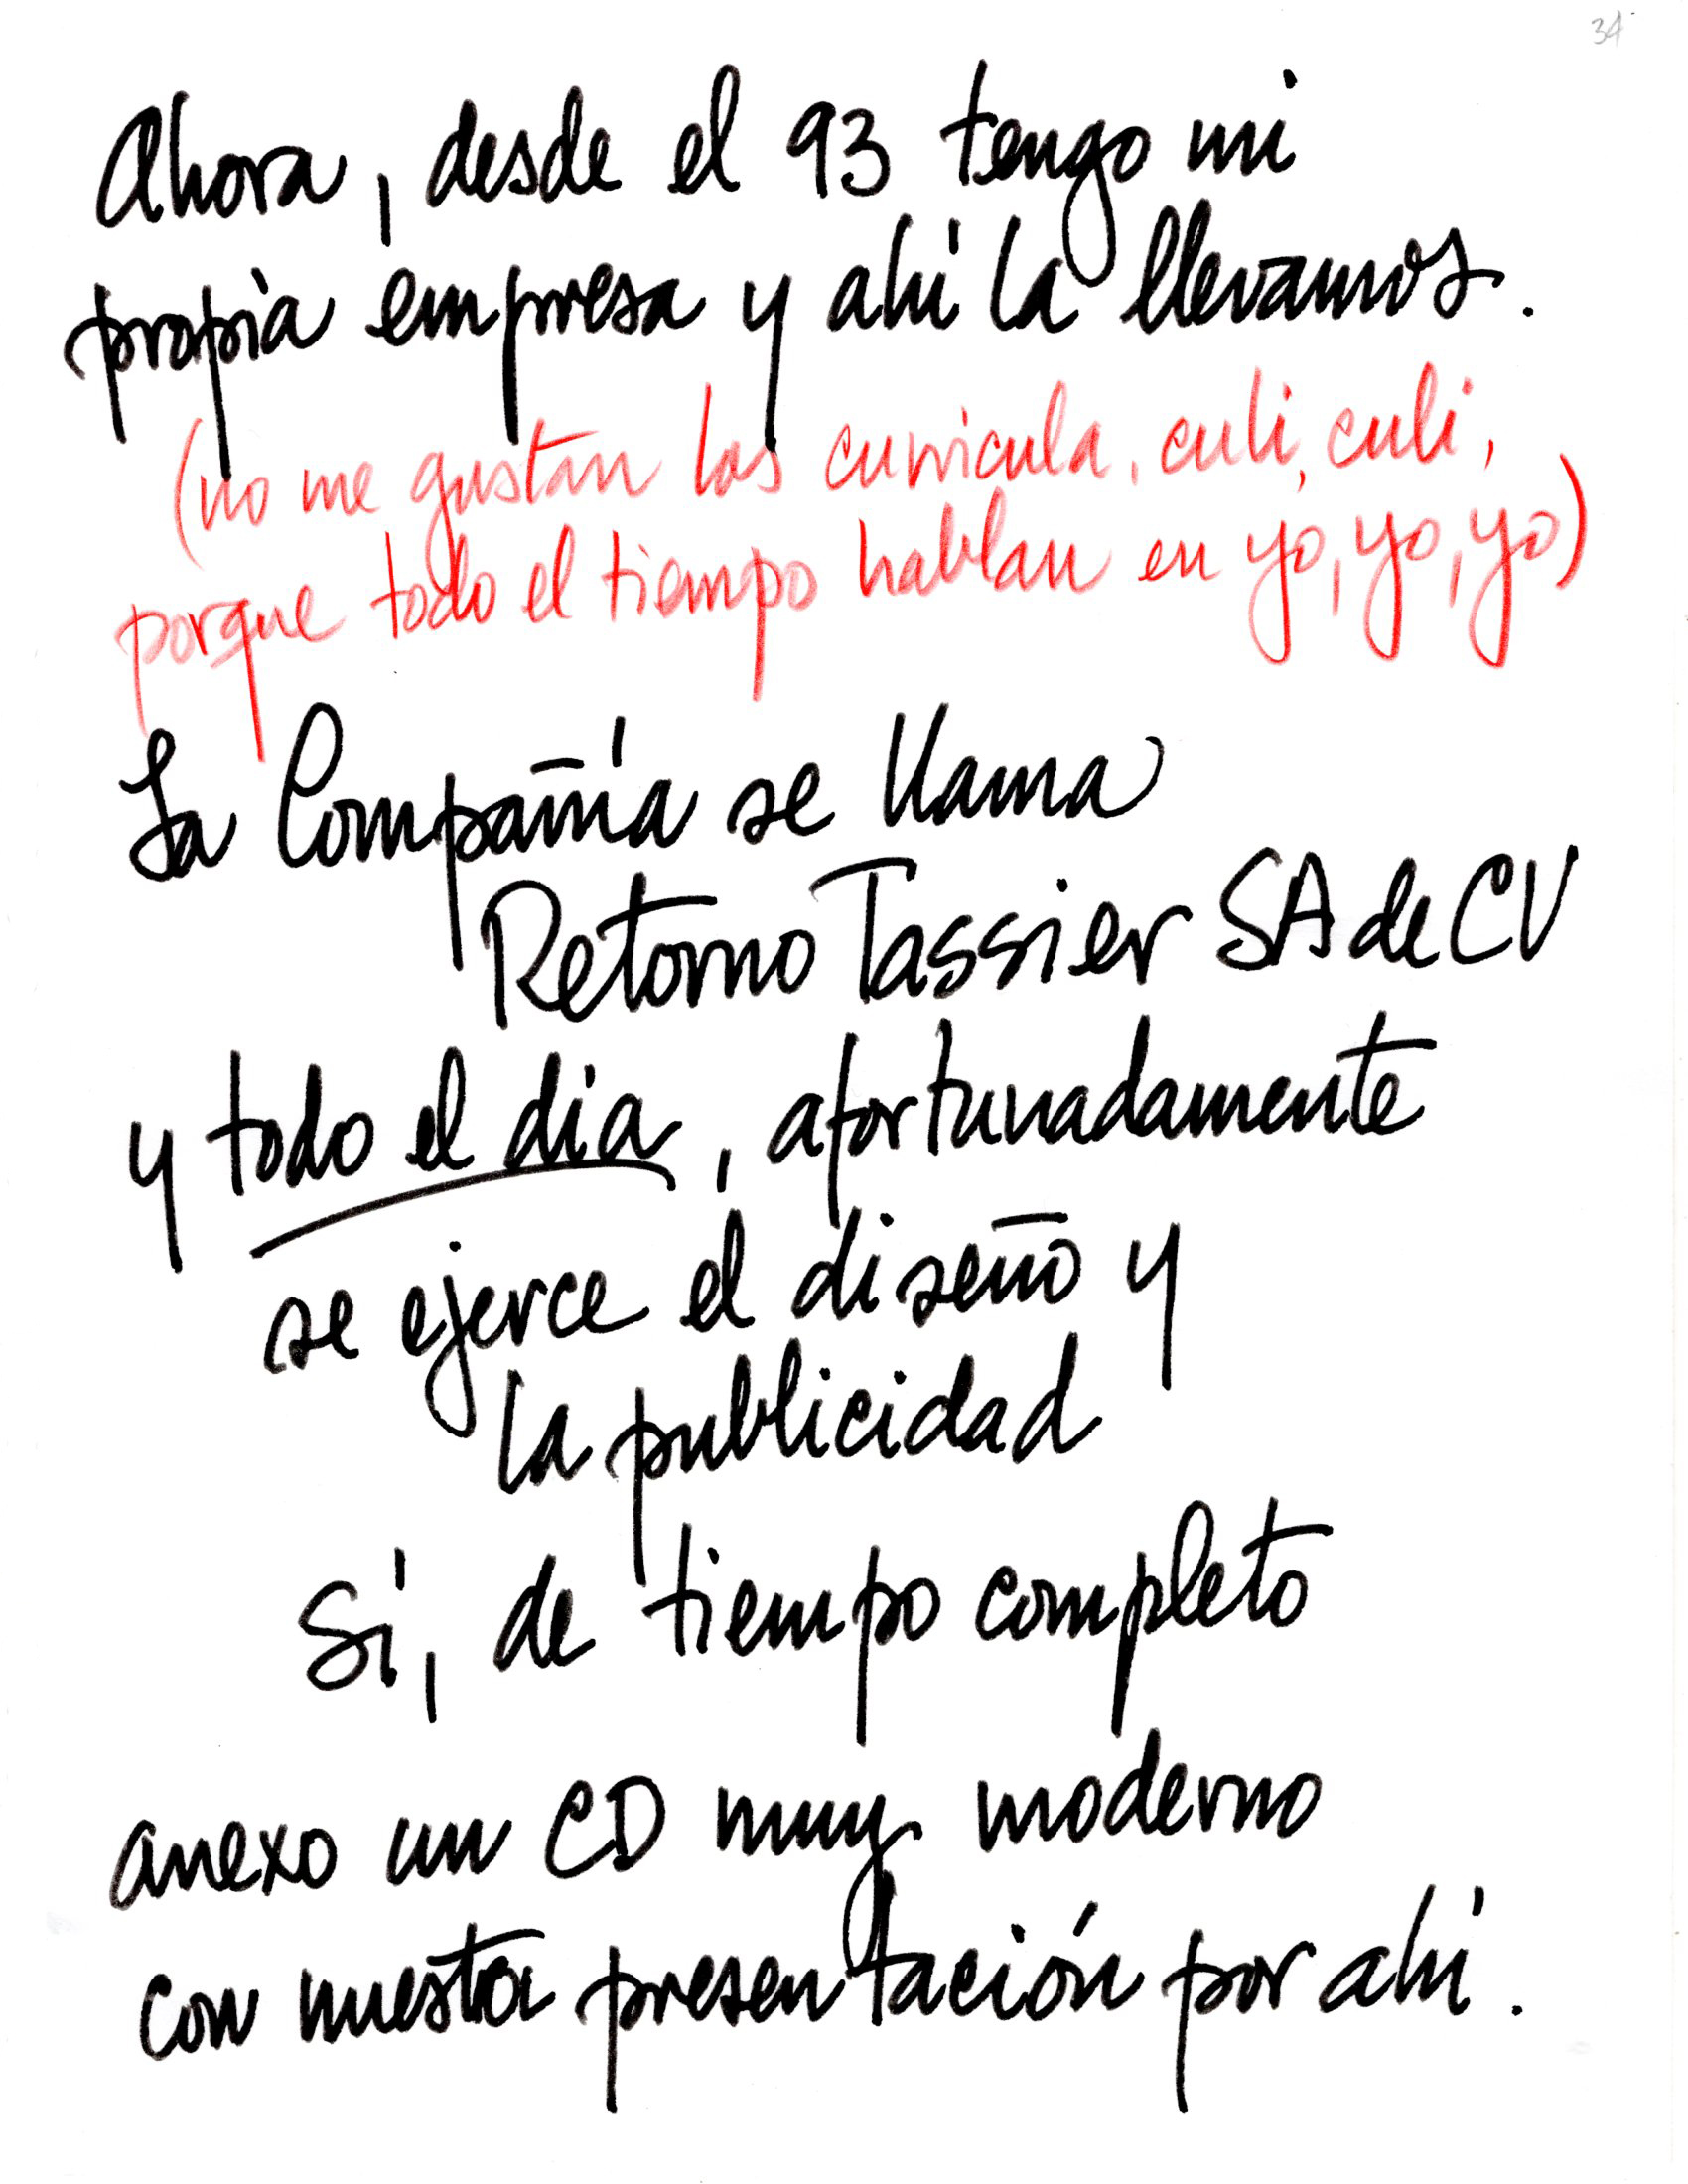 34
Ahora, desde el 93 tengo mi
propia empresa y ahí la llevamos.
(no me gustan los curricula, culi, culi,
porque todo el tiempo hablan en yo, yo, yo)
La Compañía se llama
Retorno Tassier SA de CV
y todo el día, afortunadamente
se ejerce el diseño y
la publicidad
Sí, de tiempo completo
anexo un CD muy moderno
con nuestra presentación por ahí.